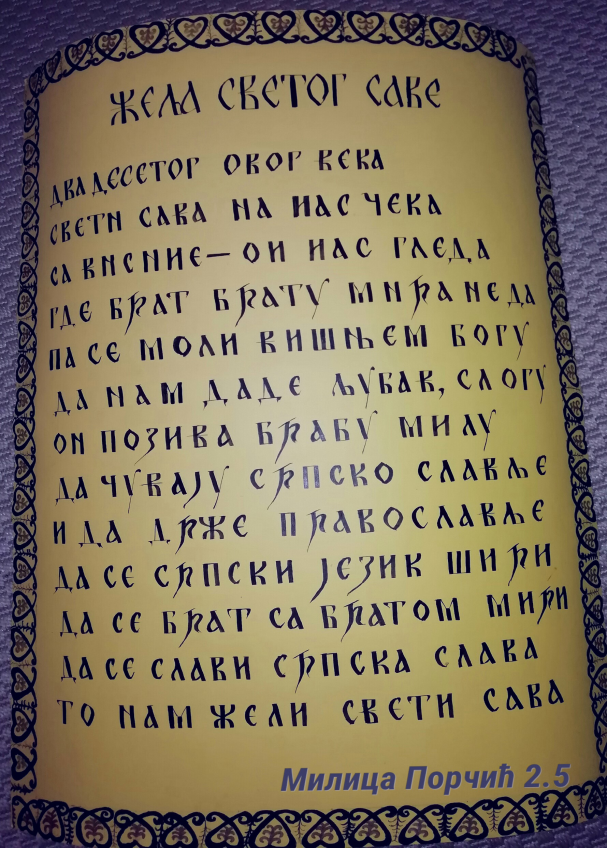 ЖЕЛА СВЕТОГ САВЕ
ДВАДЕСЕТОГ ОВОГ ВЕКА
СВЕТИ САВА НА НАС ЧЕКА
СА ВИСИНЕ — ОН НАС ГЛЕДА
ГДЕ БРАТ БРАТУ МИРА НЕ ДА
ПА СЕ МОЛИ ВИШЊЕМ БОГУ
ДА НАМ ДАДЕ ЉУБАВ, СЛОГУ
ОН ПОЗИВА БРАЋУ МИЛУ
ДА ЧУВАЈУ СРПСКО СЛАВЉЕ
И ДА ДРЖЕ ПРАВОСЛАВЉЕ
ДА СЕ СРПСКИ ЈЕЗИК ШИРИ
ДА СЕ БРАТ СА БРАТОМ МИРИ
ДА СЕ СЛАВИ СРПСКА СЛАВА
ТО НАМ ЖЕЛИ СВЕТИ САВА
Милица Порчић 2.5